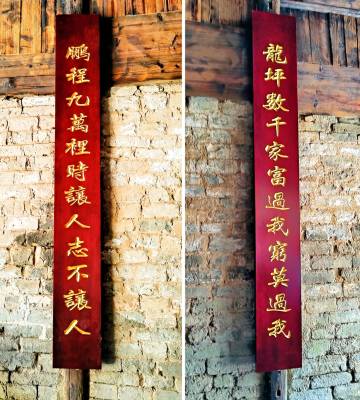 龍坪數千家富過我窮莫過我
鵬程九萬裡時讓人志不讓人